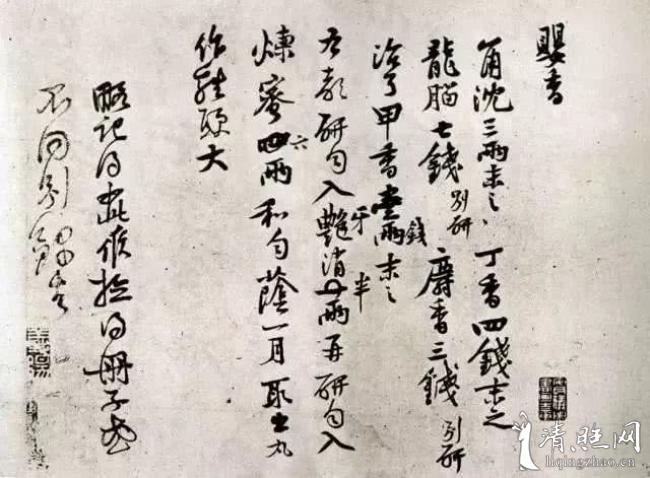 嬰香
角沈三兩末之丁香四錢末之
龍腦七錢別研麝香三錢別研
治了甲香壹錢末之
右都研勻入牙消半兩再研勻入
煉蜜六兩和勻蔭一月取出丸
作雞頭大
略記得如此候檢得冊子或
不同別錄去
清旺网
liqingzhao.cn